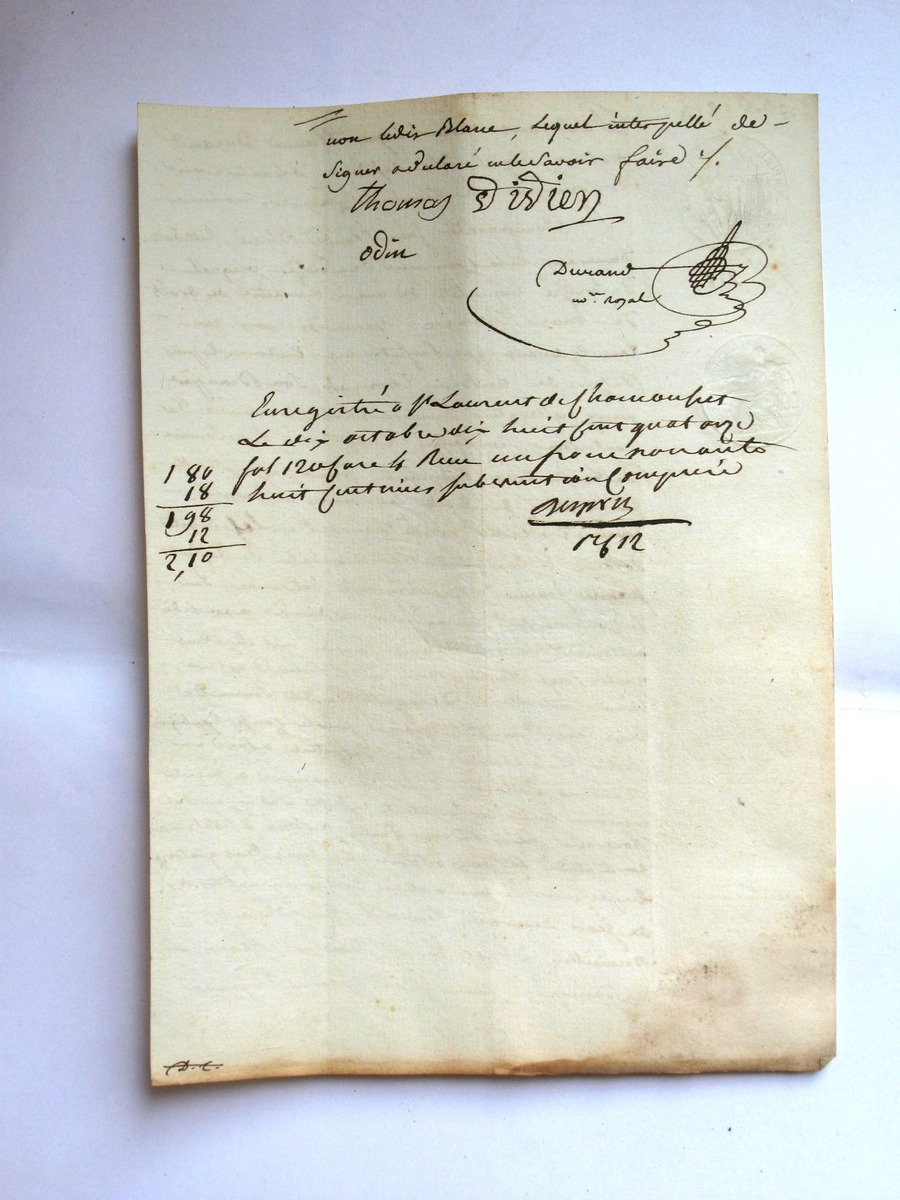 non ledit Blanc, Lequel interpellé de -
signer a déclaré ne le savoir faire ⁒.
Thomas Didien
odin
Durand
no.re royal
Enregistré a St Laurent de Chamousset
Le dix octobre dix huit cent quatorze
fol 120 case 4 Reçu un franc nonante
huit centimes subvention Comprise
1 80
18
1 98
12
2,10
D. C.